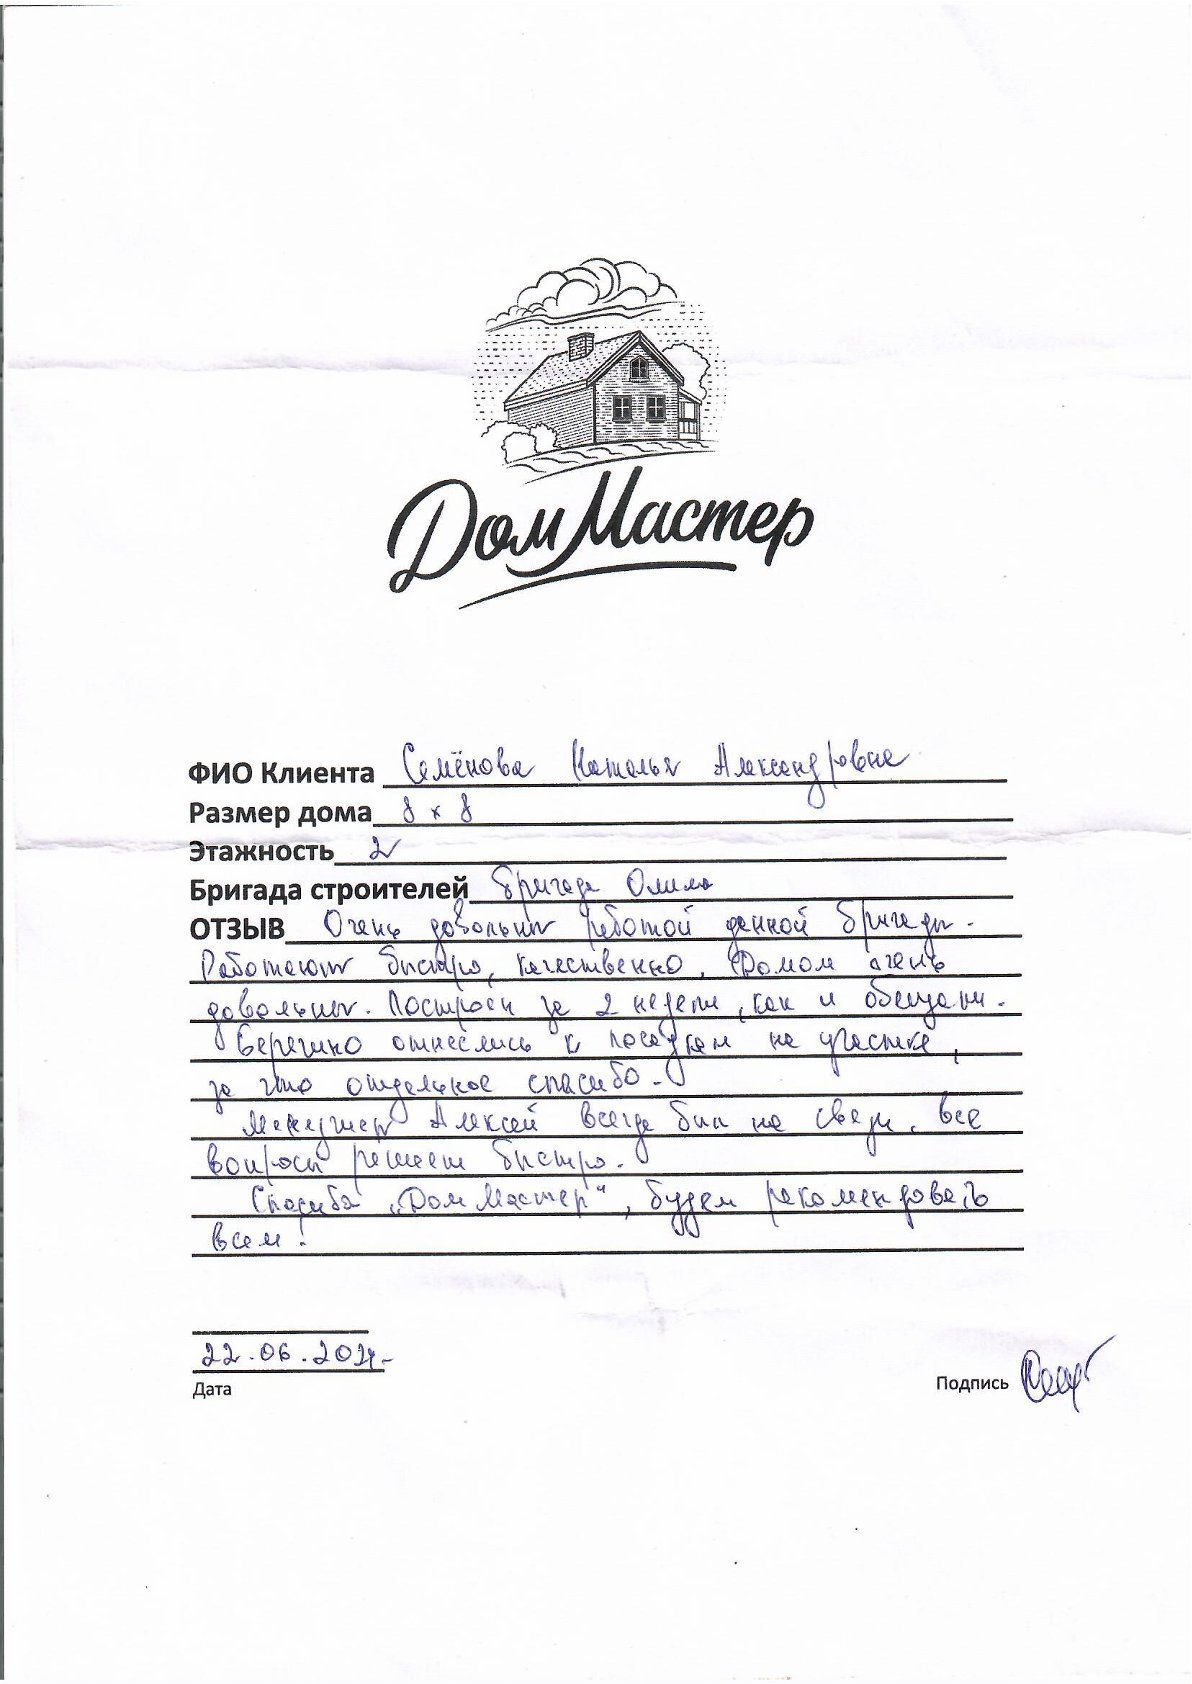 Дом Мастер
ФИО Клиента Семёнова Наталья Александровна
Размер дома 8 x 8
Этажность 2
Бригада строителей бригада Олима
ОТЗЫВ Очень довольны работой данной бригады.
Работают быстро, качественно. Домом очень
довольны. Построен за 2 недели, как и обещали.
Бережно отнеслись к посадкам на участке,
за что отдельное спасибо.
Менеджер Алексей всегда был на связи, все
вопросы решает быстро.
Спасибо „Дом Мастер“, будем рекомендовать
всем!
22.06.2021
Дата
Подпись